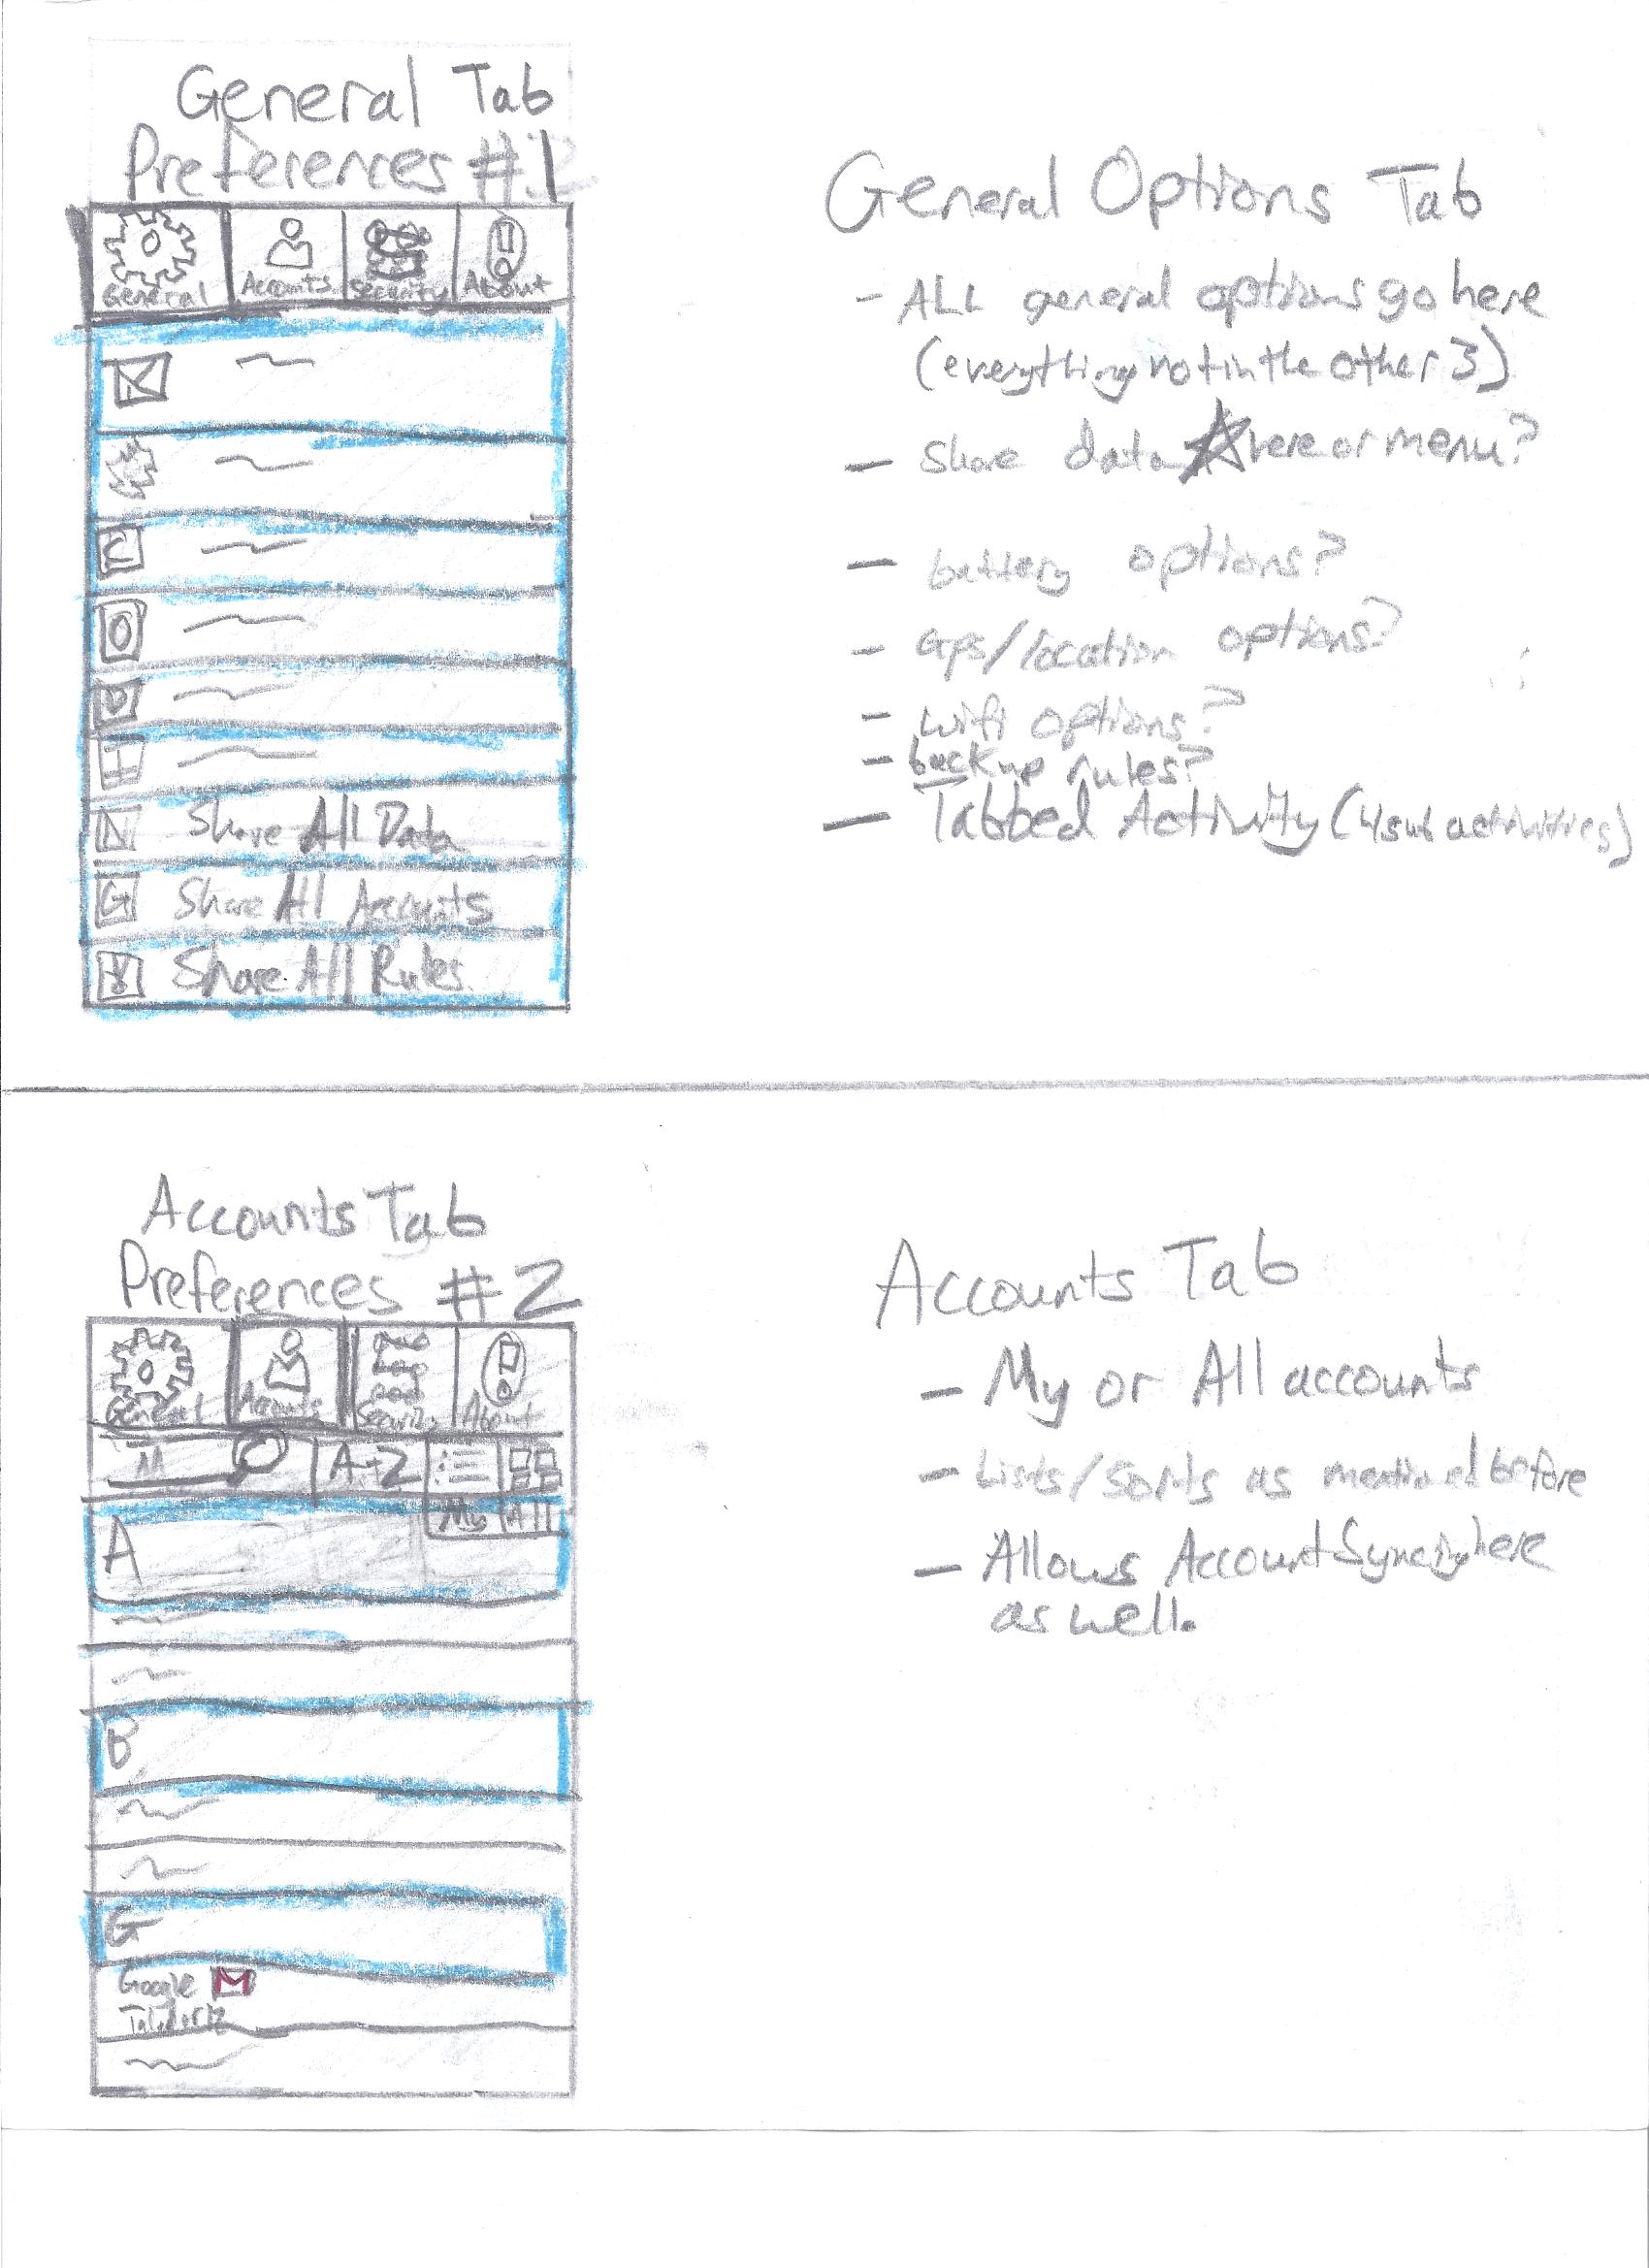 General Tab
Preferences #1
General Accounts Security About
Share All Data
Share All Accounts
Share All Rules
General Options Tab
- ALL general options go here
(everything not in the other 3)
- Share data here or menu?
- battery options?
- GPS/location options?
- wifi options?
- backup rules?
- Tabbed Activity (4 sub activities)
Accounts Tab
Preferences #2
General Accounts Security About
A-Z
My All
A
B
G
Google M
Accounts Tab
- My or All accounts
- Lists/Sorts as mentioned before
- Allows Account Syncing here
as well.